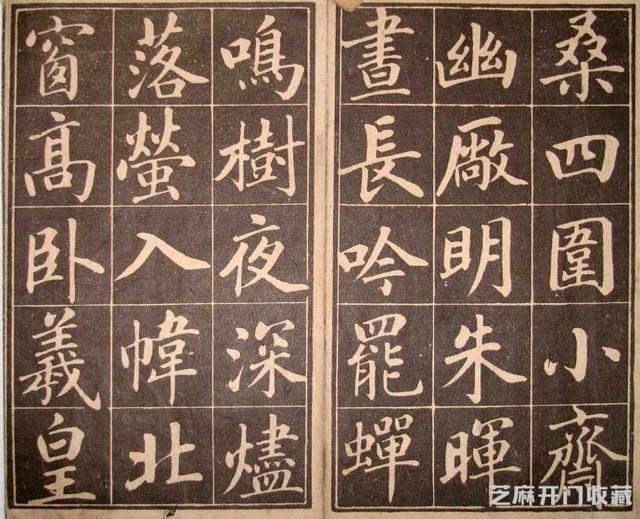 桑四圍小齋
幽厰明朱暉
晝長吟罷蟬
鳴樹夜深燼
落螢入幃北
窗高卧羲皇
芝麻开门收藏